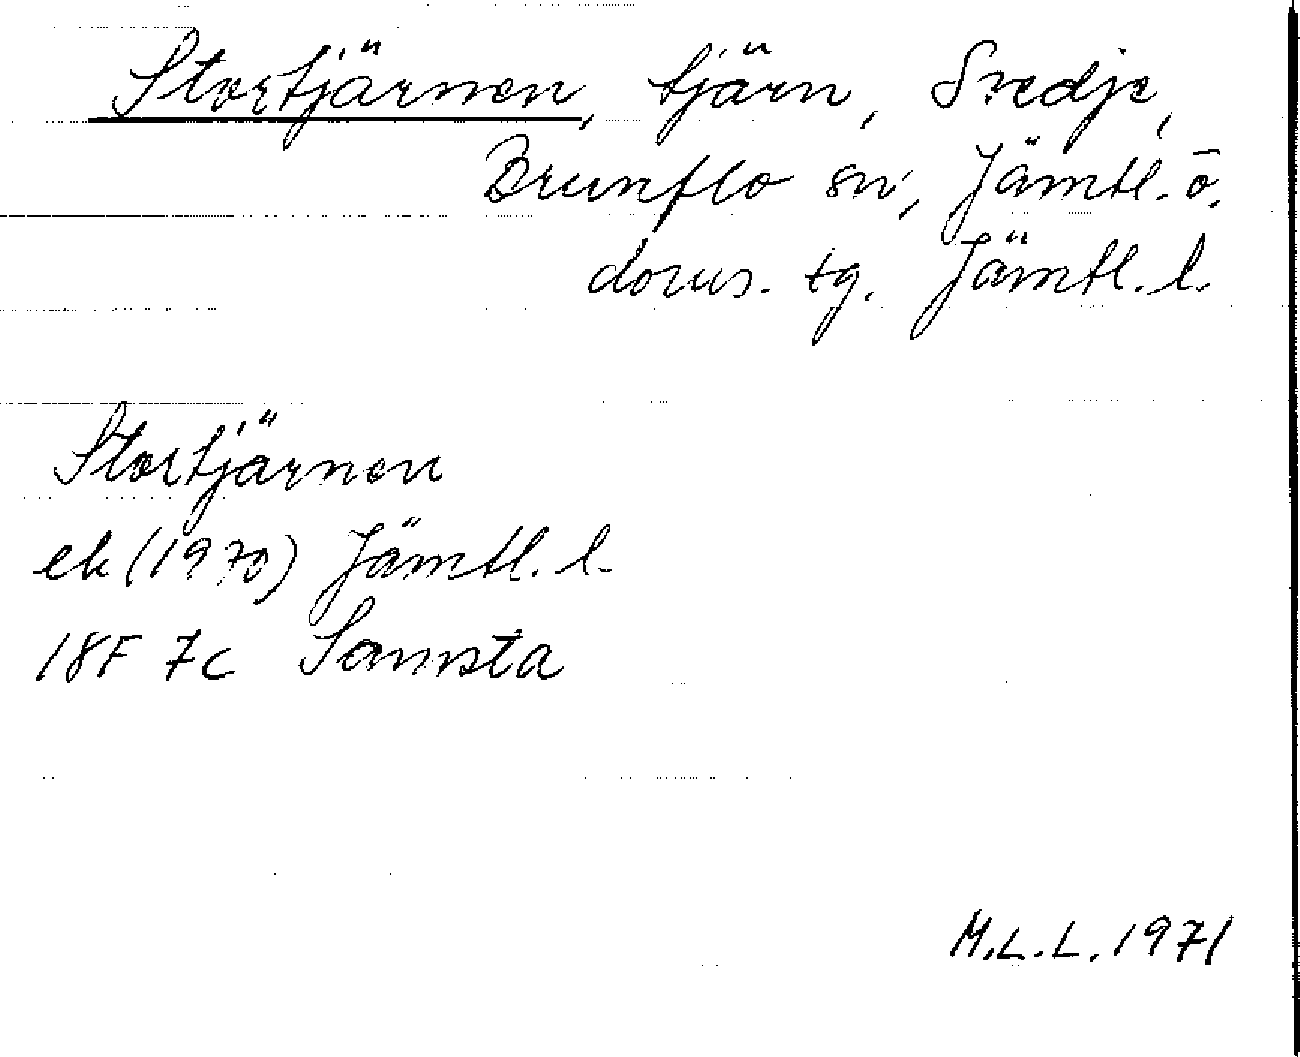 Stortjärnen, tjärn, Svedje,
Brunflo sn, Jämtl. ö.
doms. tg. Jämtl. l.
Stortjärnen
ek (1970) Jämtl. l.
18F 7c Sannsta
M.L.L. 1971